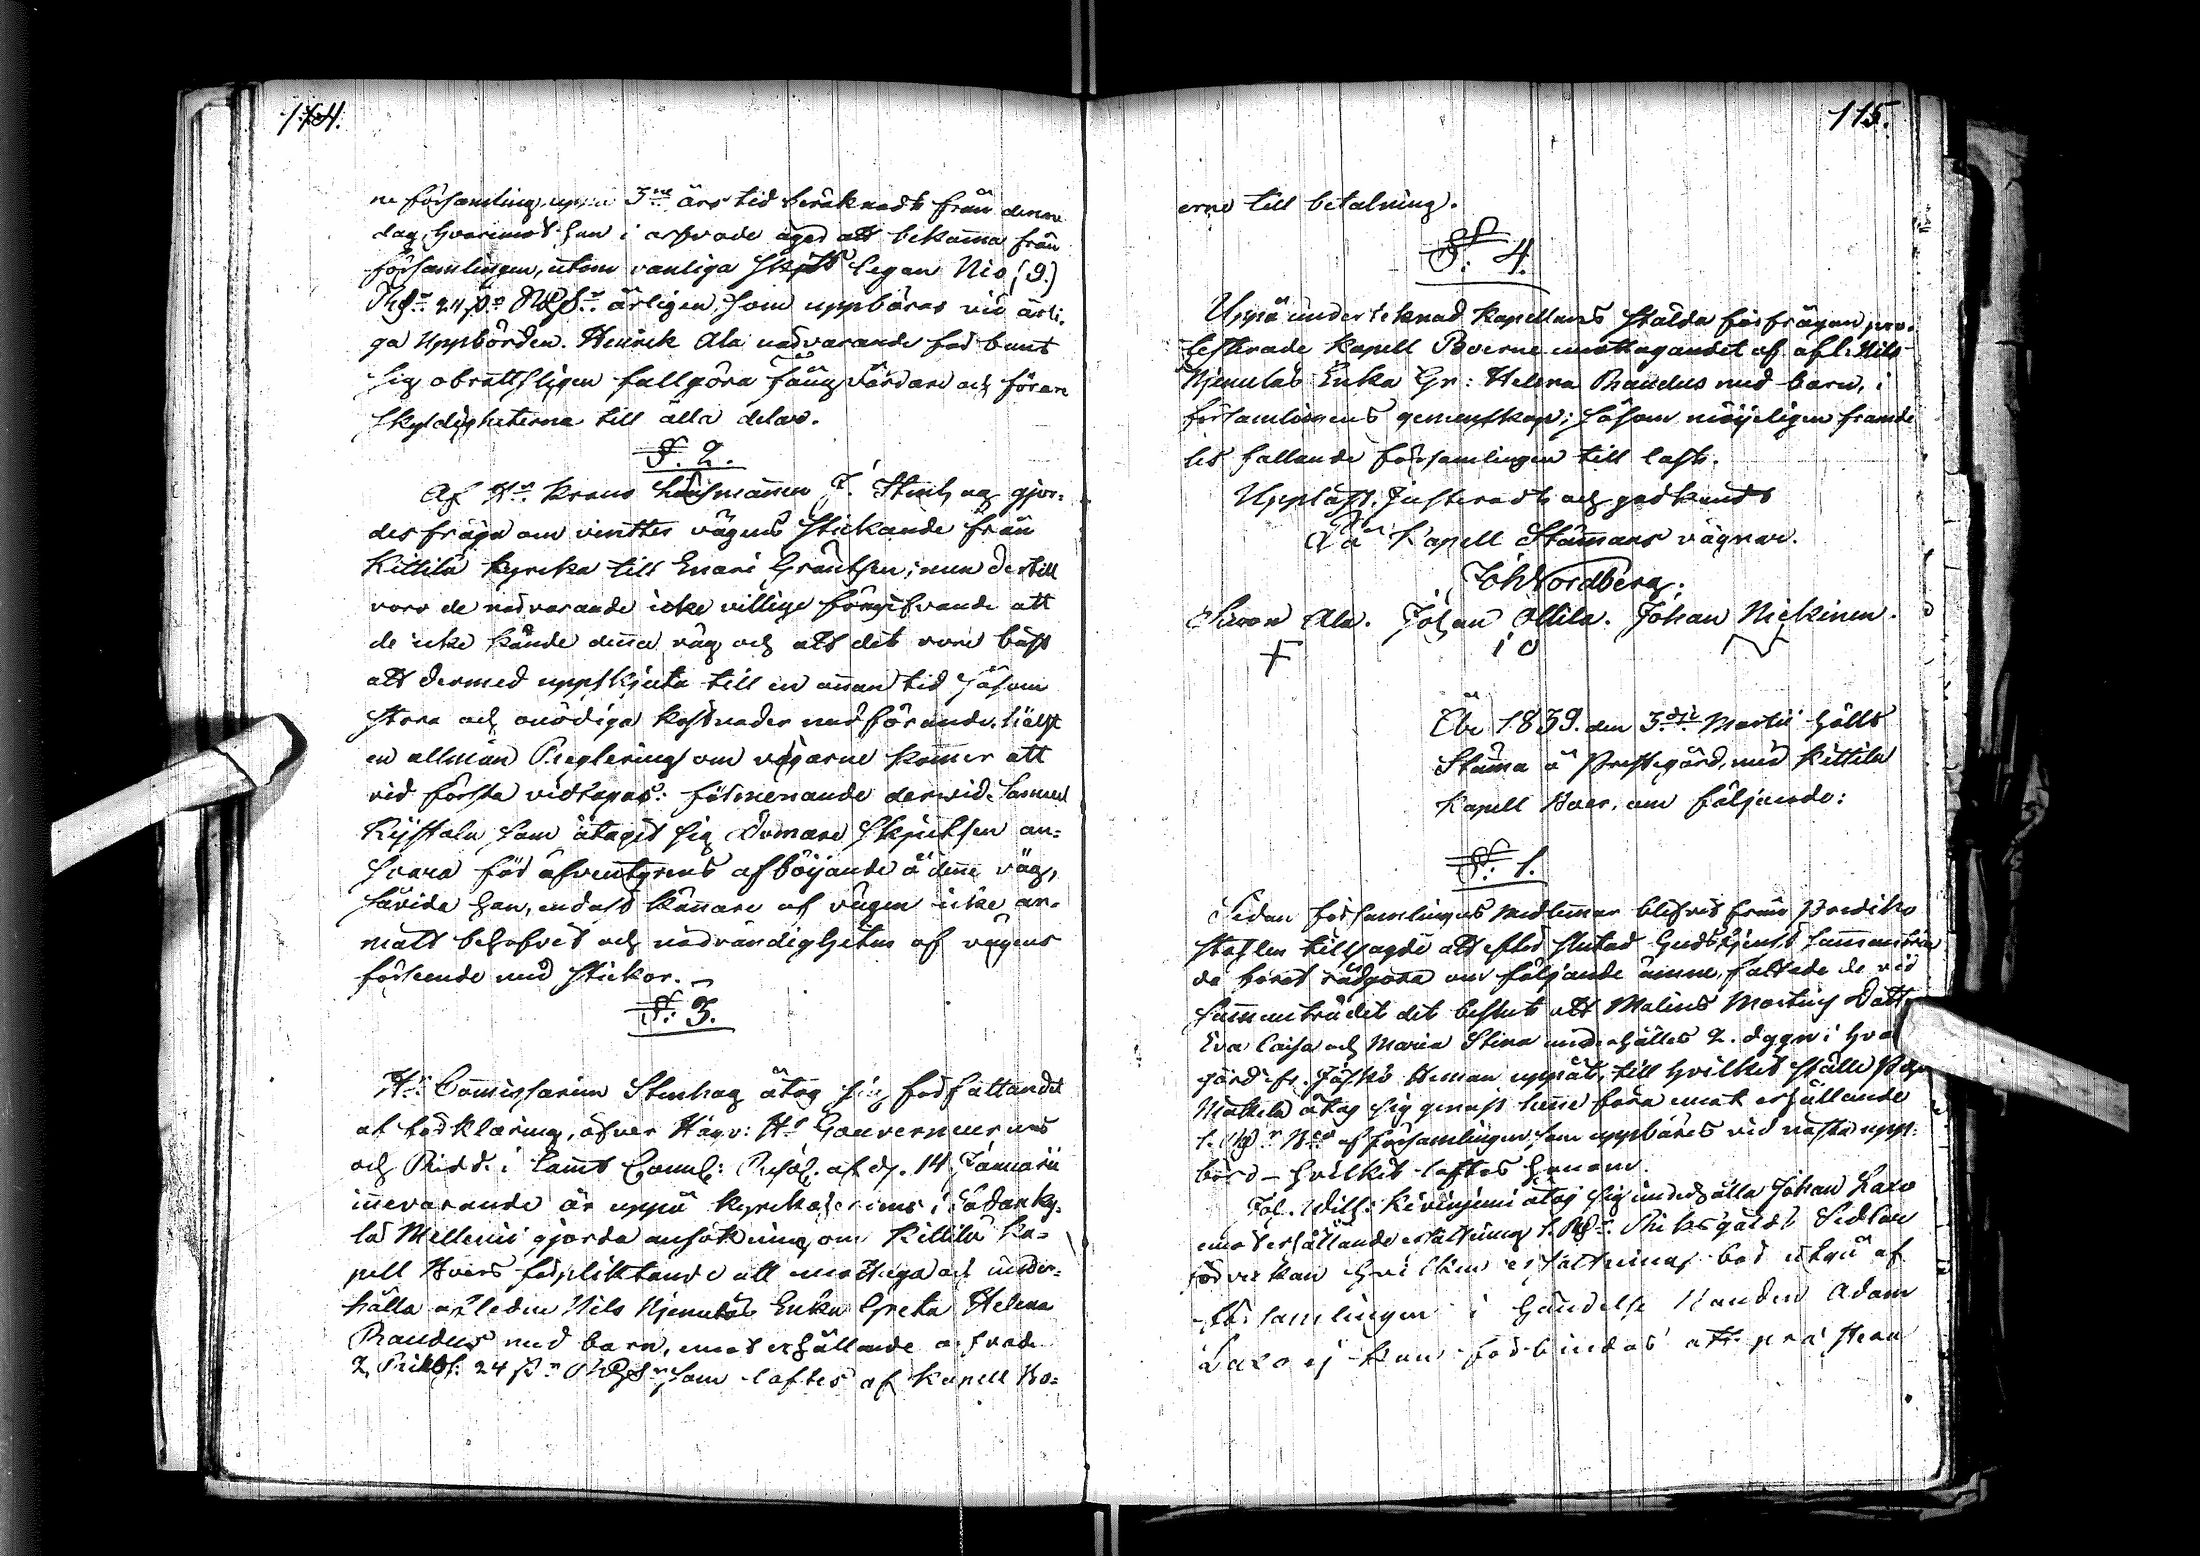 114.
ne församling, uppå 3ne års tid beräknadt från denna
dag, hvaremot han i arfvode äger att bekomma från
församlingen, utom vanliga Skjuts legan Nio (9.)
Rdr 24 sk. Rgs. årligen, som uppbäras vid årli-
ga Uppbörden. Henrik Ala närvarande förbant
sig obrottsligen fullgöra fång vårdare och förare
skyldigheterna till alla delar.
§. 2.
Af Hr Krono Länsmannen J. Stenhag gjor-
des fråga om vintter vägens stickande från
Kittilä kyrka till Enari Gräntsen; men dertill
voro de närvarande icke villige föregifvande att
de icke kände denna väg och att det vore bäst
att dermed uppskjuta till en annan tid såsom
stora och onödiga kostnader medförande, hälst
en allmän Reglering om vägarne kommer att
vid första vidtagas: förmenande dervid Samuel
Kystola som åtagit sig Domare skjutsen an-
svara för äfventyrets afböijande å denne väg,
såvida han, endast kännare af vägen icke an-
mält behofvet och nödvändigheten af vägens
förseende med stickor.
§. 3.
Hr Commissarien Stenhag åtog sig författandet
af förklaring, öfver Högv: Hr Gouverneurens
och Ridd. i Lannts Cancel: Resol. af d. 14 Januarii
innevarande år uppå kyrkoherdens i Sodanky-
lä Mellenii gjorda ansökning om Kittilä Ka-
pell Boers förpliktande att emottaga och under-
hålla afledne Nils Njemeläs Enka Greta Helena
Randus med barn, emot erhållande arfvode
2 Riksd. 24 sk. Rgs. som loftes af Kapell Bo-
115.
erne till betalning.
§. 4.
Uppå undertecknad Kapellans stälda förfrågan, pro-
testerade Kapell Boerne emottagandet af afl: Nils
Njemeläs Enka Gr: Helena Randus med barn, i
församlingens gemenskap; såsom möijeligen framde-
les fallande församlingen till last.
Uppläst, Justeradt och godkändt
På Kapell Stämmans vägnar.
Joh Nordberg.
Simon Ala. Johan Ollila. Johan Niekinen.
År 1839. den 3dje Martii hölts
Stämma å Prestegård, med Kittilä
Kapell Boer, om följande:
§. 1.
Sedan församlingens medlemmar blifvit från Prediko
stohlen tillsagde att efter slutad Gudstjenst sammanträ-
da för att rådgöra om följande ämne, fattade de vid
sammanträdet det beslut att Malins Martins Dotter
Eva Caisa och Maria Stina underhålles 2. dygn i hvar
gård fr. Jåsko Heman uppåt, till hvilket ställe
Mattila åtog sig genast henne föra emot erhållande
1. Rd af församlingen som uppbäres vid nästa upp-
börd – hvilket loftes honom.
Joh. Will. Kiviniemi åtog sig underhålla Johan Laxo
emot erhållande ersättning 1. Rd. Riksgälds Sedlar
för veckan hvilken ersättning bör utgå af
församlingen i händelse Bonden Adam
Laxo ej kan förbindas att prästera